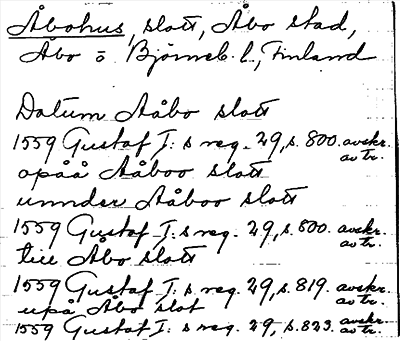 Åbohus, slott, Åbo stad,
Åbo o Björneb. l., Finland
Datum Aåbo slott
1559 Gustaf I: s reg. 29, s. 800. avskr. av tr.
opåå Aåboo slott
unnder Aåboo slott
1559 Gustaf I: s reg. 29, s. 800. avskr. av tr.
till Åbo slott
1559 Gustaf I: s reg. 29, s. 819. avskr. av tr.
upå Åbo slot
1559 Gustaf I: s reg. 29, s. 823. avskr. av tr.